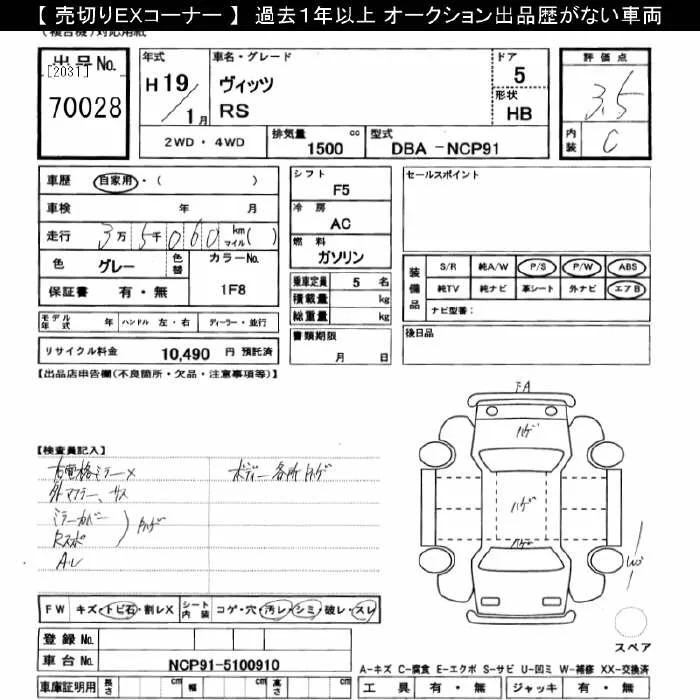 【 売切りEXコーナー 】 過去1年以上 オークション出品歴がない車両
(複合機)対応用紙
出品No.
[2031]
70028
年式
H 19 / 1月
車名・グレード
ヴィッツ
RS
ドア
5
形状
HB
2WD・4WD
排気量 cc
1500
型式
DBA -NCP91
評価点
3.5
内装
C
車歴 自家用・( )
車検 年 月
走行 3万 5千 0 6 0 km マイル ( )
色 グレー 色替
カラーNo.
1F8
保証書 有・無
シフト
F5
冷房
AC
燃料
ガソリン
乗車定員 5 名
積載量 kg
総重量 kg
書類期限
月 日
セールスポイント
装備品
S/R 純A/W P/S P/W ABS
純TV 純ナビ 革シート 外ナビ エアB
ナビ型番:
後日品
モデル年式 年 ハンドル 左・右 ディーラー・並行
リサイクル料金 10,490 円 預託済
【出品店申告欄(不良箇所・欠品・注意事項等)】
【検査員記入】
右電格ミラー×
ボディー各所
外マフラー、サス
ミラーカバー
Rスポ
FA
ハゲ
ハゲ
ハゲ
スペア
FW キズ・トビ石・割レX シート内装 コゲ・穴・汚レ・シミ・破レ・スレ
登録No.
車台No. NCP91-5100910
A-キズ C-腐食 E-エクボ S-サビ U-凹ミ W-補修 XX-交換済
車庫証明用 長さ cm 幅 cm 高さ cm
工具 有・無 ジャッキ 有・無